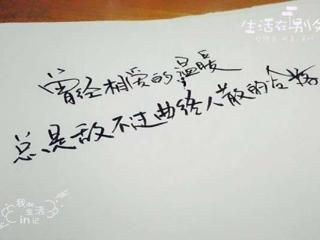 生活在别处
曾经相爱的温暖
总是敌不过曲终人散的
我的
生活
in记